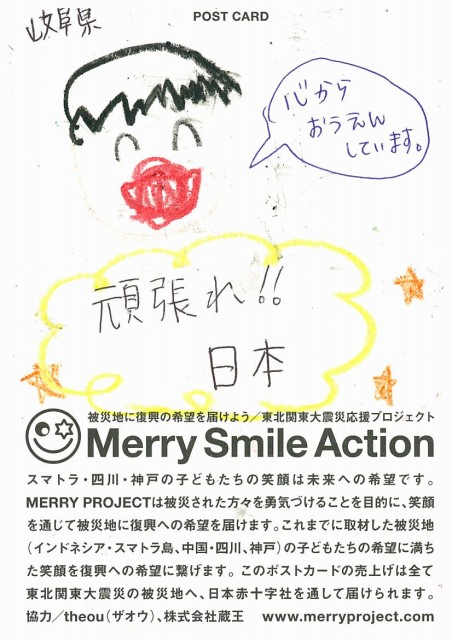 POST CARD
岐阜県
心から
おうえん
しています。
頑張れ!!
日本
被災地に復興の希望を届けよう／東北関東大震災応援プロジェクト
Merry Smile Action
スマトラ・四川・神戸の子どもたちの笑顔は未来への希望です。
MERRY PROJECTは被災された方々を勇気づけることを目的に、笑顔
を通じて被災地に復興への希望を届けます。これまでに取材した被災地
（インドネシア・スマトラ島、中国・四川、神戸）の子どもたちの希望に満ち
た笑顔を復興への希望に繋げます。このポストカードの売上げは全て
東北関東大震災の被災地へ、日本赤十字社を通して届けられます。
協力／theou（ザオウ）、株式会社蔵王　www.merryproject.com